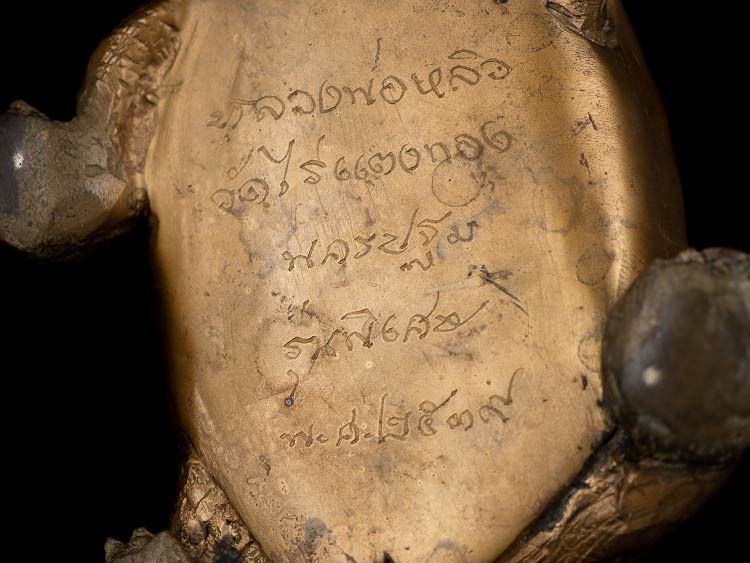 หลวงพ่อหลิว
วัดไร่แตงทอง
นครปฐม
รุ่นพิเศษ
พ.ศ.๒๕๓๙